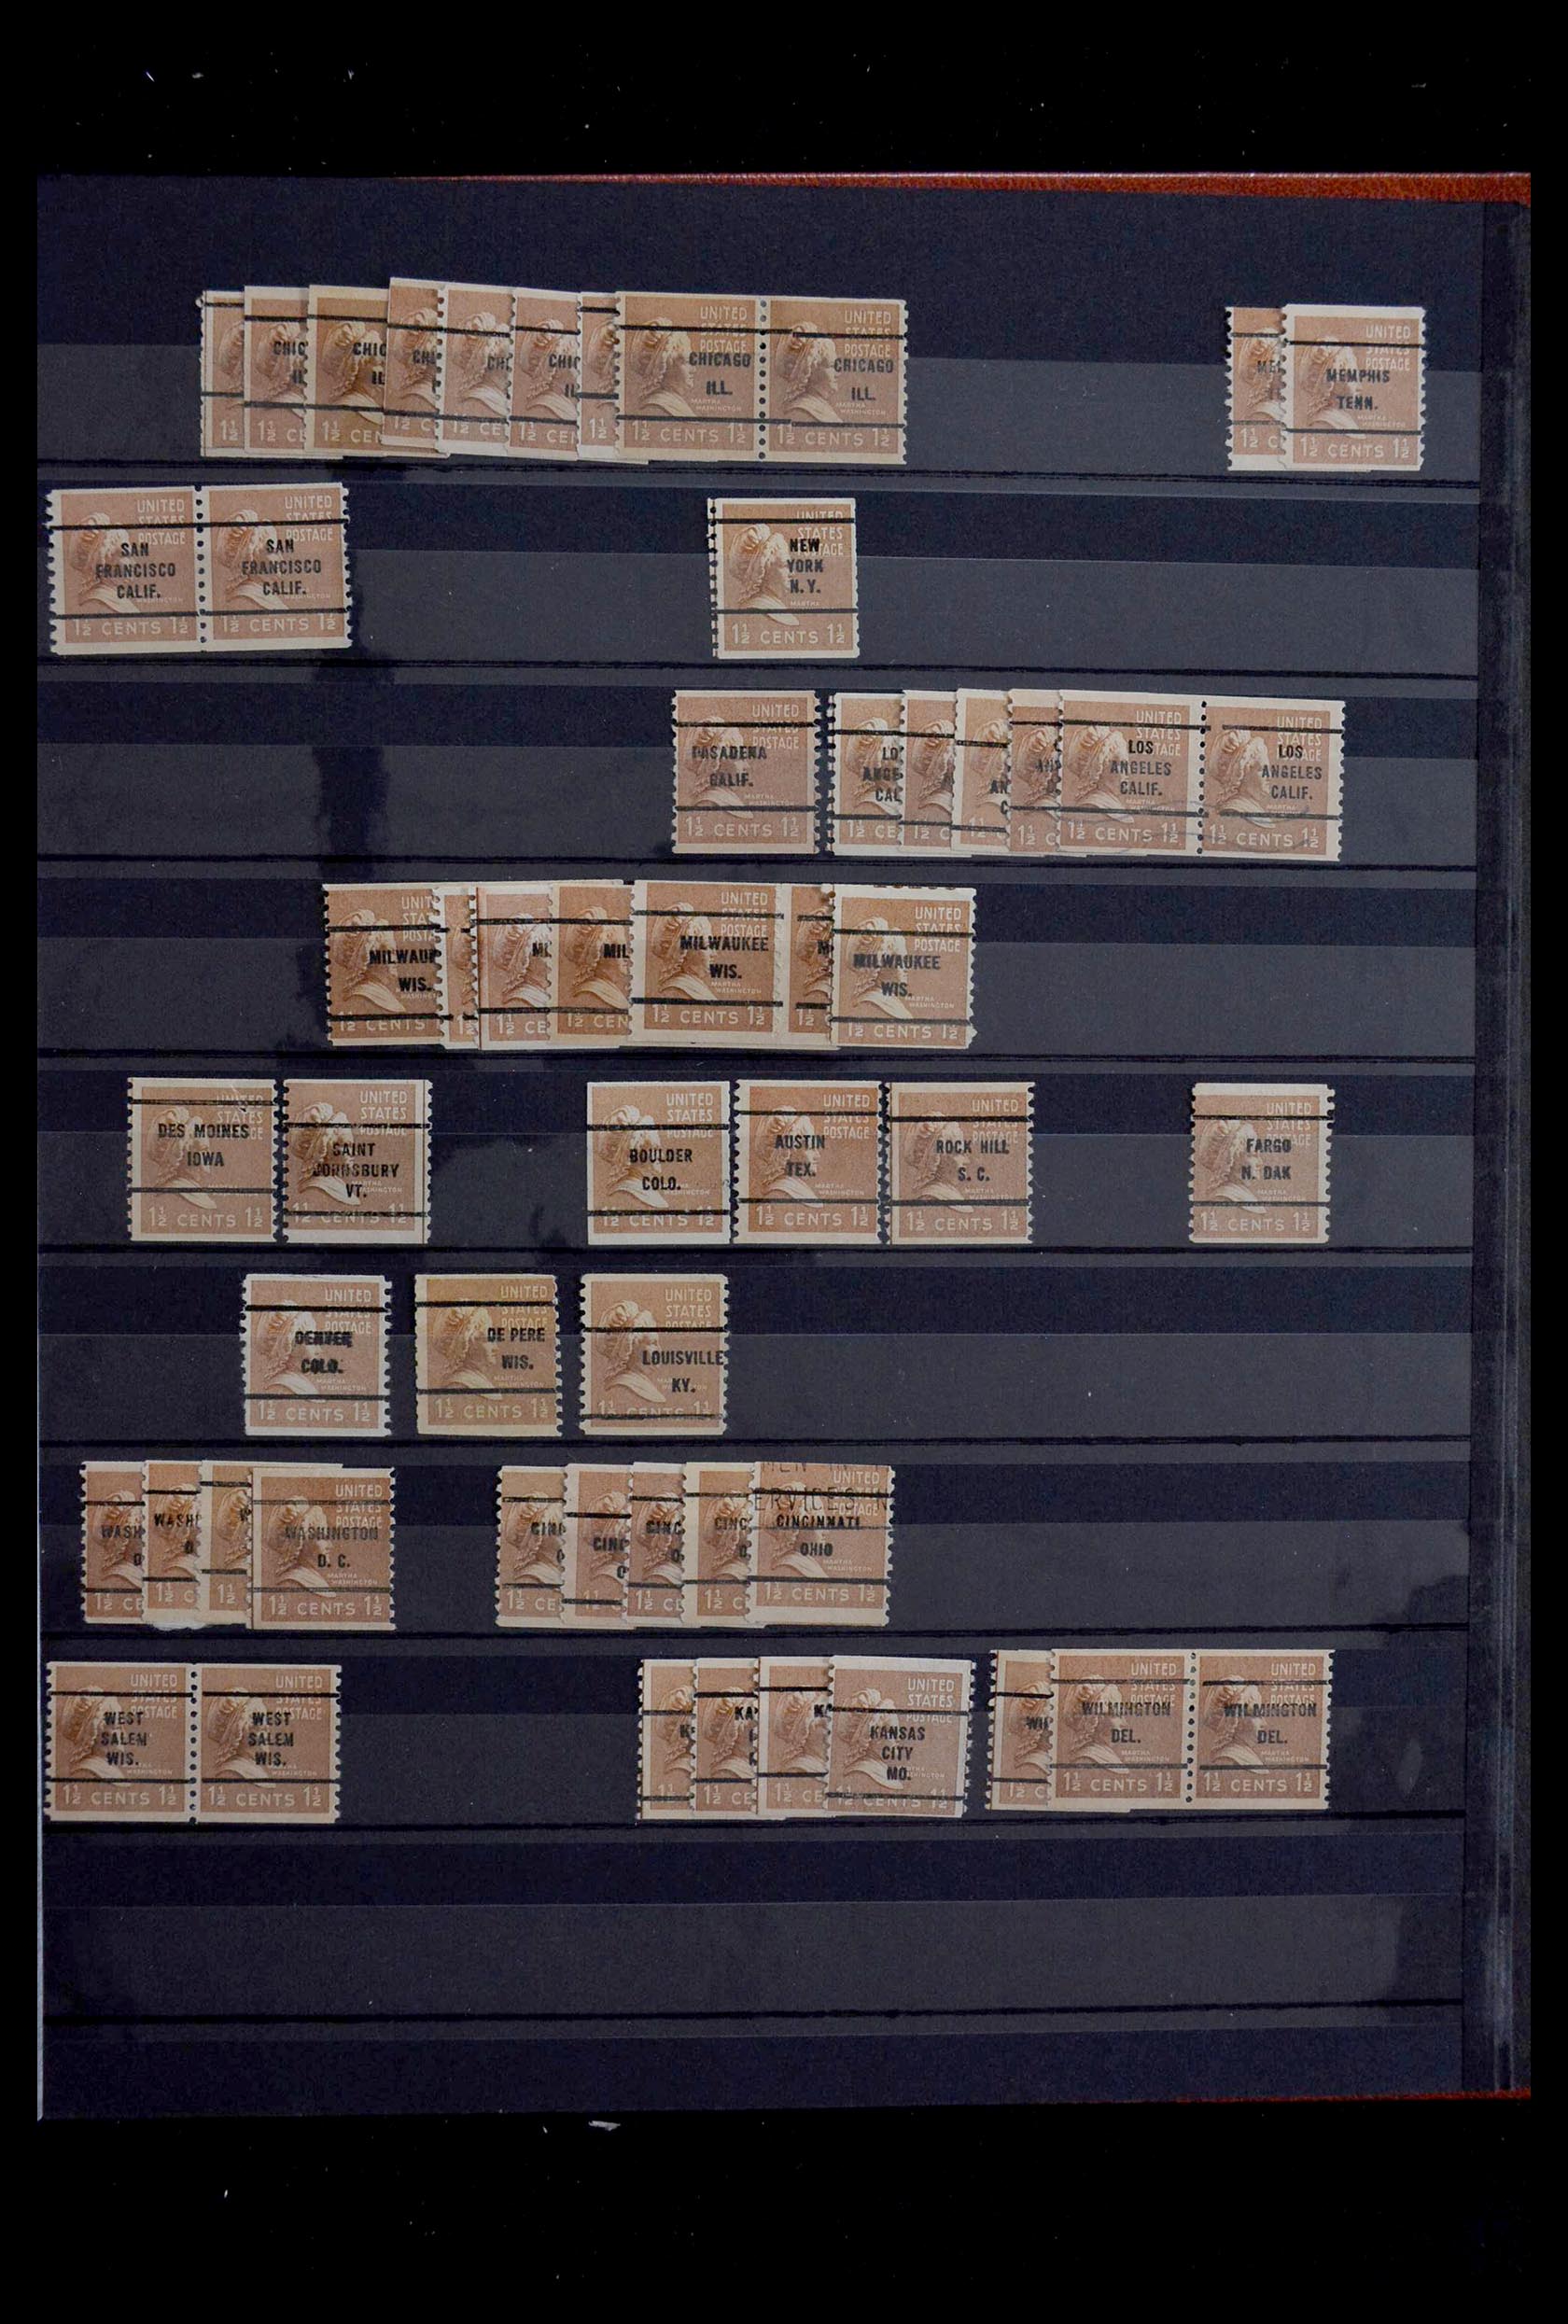 CHIC
IL
1½ CE
CHIC
IL
1½ CEN
CHI
1½ C
CHI
1½ CE
CHIC
IL
1½ CE
1½
UNITED
STATES
POSTAGE
CHICAGO
ILL.
MARTHA
WASHINGTON
1½ CENTS 1½
UNITED
STATES
POSTAGE
CHICAGO
ILL.
MARTHA
WASHINGTON
1½ CENTS 1½
ME
1½ C
UNITED
STATES
POSTAGE
MEMPHIS
TENN.
MARTHA
WASHINGTON
1½ CENTS 1½
UNITED
STATES
POSTAGE
SAN
FRANCISCO
CALIF.
WASHINGTON
1½ CENTS 1½
UNITED
STATES
POSTAGE
SAN
FRANCISCO
CALIF.
WASHINGTON
1½ CENTS 1½
UNITED
STATES
NEW
YORK
N.Y.
MARTHA
1½ CENTS 1½
UNITED
STATES
POSTAGE
PASADENA
CALIF.
MARTHA
WASHINGTON
1½ CENTS 1½
LO
ANGE
CAL
1½ CE
1½ C
AN
C
1½
AN
1½ C
UNITED
STATES
LOS
ANGELES
CALIF.
MARTHA
1½ CENTS 1½
UNITED
STATES
LOS
ANGELES
CALIF.
MARTHA
1½ CENTS 1½
UNIT
STAT
POSTA
MILWAUK
WIS.
WASHING
1½ CENTS
MI
1½ CE
MIL
1½ CEN
UNITED
STATES
POSTAGE
MILWAUKEE
WIS.
MARTHA
WASHINGTON
1½ CENTS 1½
M
1½
UNITED
STATES
POSTAGE
MILWAUKEE
WIS.
MARTHA
WASHINGTON
1½ CENTS 1½
UNITED
STATES
DES MOINES
IOWA
MARTHA
WASHINGTON
1½ CENTS 1½
UNITED
STATES
POSTAGE
SAINT
JOHNSBURY
VT.
WASHINGTON
1½ CENTS 1½
UNITED
STATES
POSTAGE
BOULDER
COLO.
MARTHA
WASHINGTON
1½ CENTS 1½
UNITED
STATES
POSTAGE
AUSTIN
TEX.
MARTHA
WASHINGTON
1½ CENTS 1½
UNITED
STATES
POSTAGE
ROCK HILL
S. C.
MARTHA
WASHINGTON
1½ CENTS 1½
UNITED
STATES
FARGO
N. DAK
MARTHA
WASHINGTON
1½ CENTS 1½
UNITED
STATES
POSTAGE
DENVER
COLO.
MARTHA
WASHINGTON
1½ CENTS 1½
UNITED
STATES
POSTAGE
DE PERE
WIS.
MARTHA
WASHINGTON
1½ CENTS 1½
UNITED
STATES
POSTAGE
LOUISVILLE
KY.
MARTHA
WASHINGTON
1½ CENTS 1½
WASH
D
1½ CE
WASHI
D.
1½ C
W
1½
UNITED
STATES
POSTAGE
WASHINGTON
D. C.
MARTHA
WASHINGTON
1½ CENTS 1½
CINI
O
1½ CE
CINC
O
CINC
O
1½ C
CINC
O
1½ C
MEN IN
ERVICES IN
UNITED
STATES
CINCINNATI
OHIO
MARTHA
WASHINGTON
1½ CENTS 1½
UNITED
STATES
POSTAGE
WEST
SALEM
WIS.
MARTHA
WASHINGTON
1½ CENTS 1½
UNITED
STATES
POSTAGE
WEST
SALEM
WIS.
MARTHA
WASHINGTON
1½ CENTS 1½
K
KA
1½ CE
K
1½ CE
UNITED
STATES
POSTAGE
KANSAS
CITY
MO.
WASHINGTON
1½ CENTS 1½
WI
1½ C
UNITED
STATES
POSTAGE
WILMINGTON
DEL.
MARTHA
WASHINGTON
1½ CENTS 1½
UNITED
STATES
POSTAGE
WILMINGTON
DEL.
MARTHA
WASHINGTON
1½ CENTS 1½